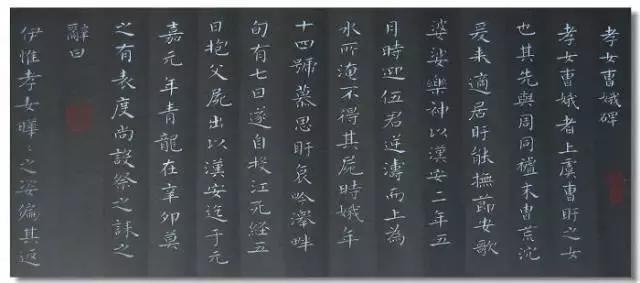 孝女曹娥碑
孝女曹娥者上虞曹盱之女
也其先與周同末曹荒沉
爰来適居盱能撫節安歌
婆娑樂神以漢安二年五
月時迎伍君逆濤而上為
水所淹不得其屍時娥年
十四號慕思盱哀吟澤畔
旬有七日遂自投江死経五
日抱父屍出以漢安迄于元
嘉元年青龍在辛卯莫
之有表度尚設祭之誄之
辭曰
伊惟孝女曄〻之姿偏其返